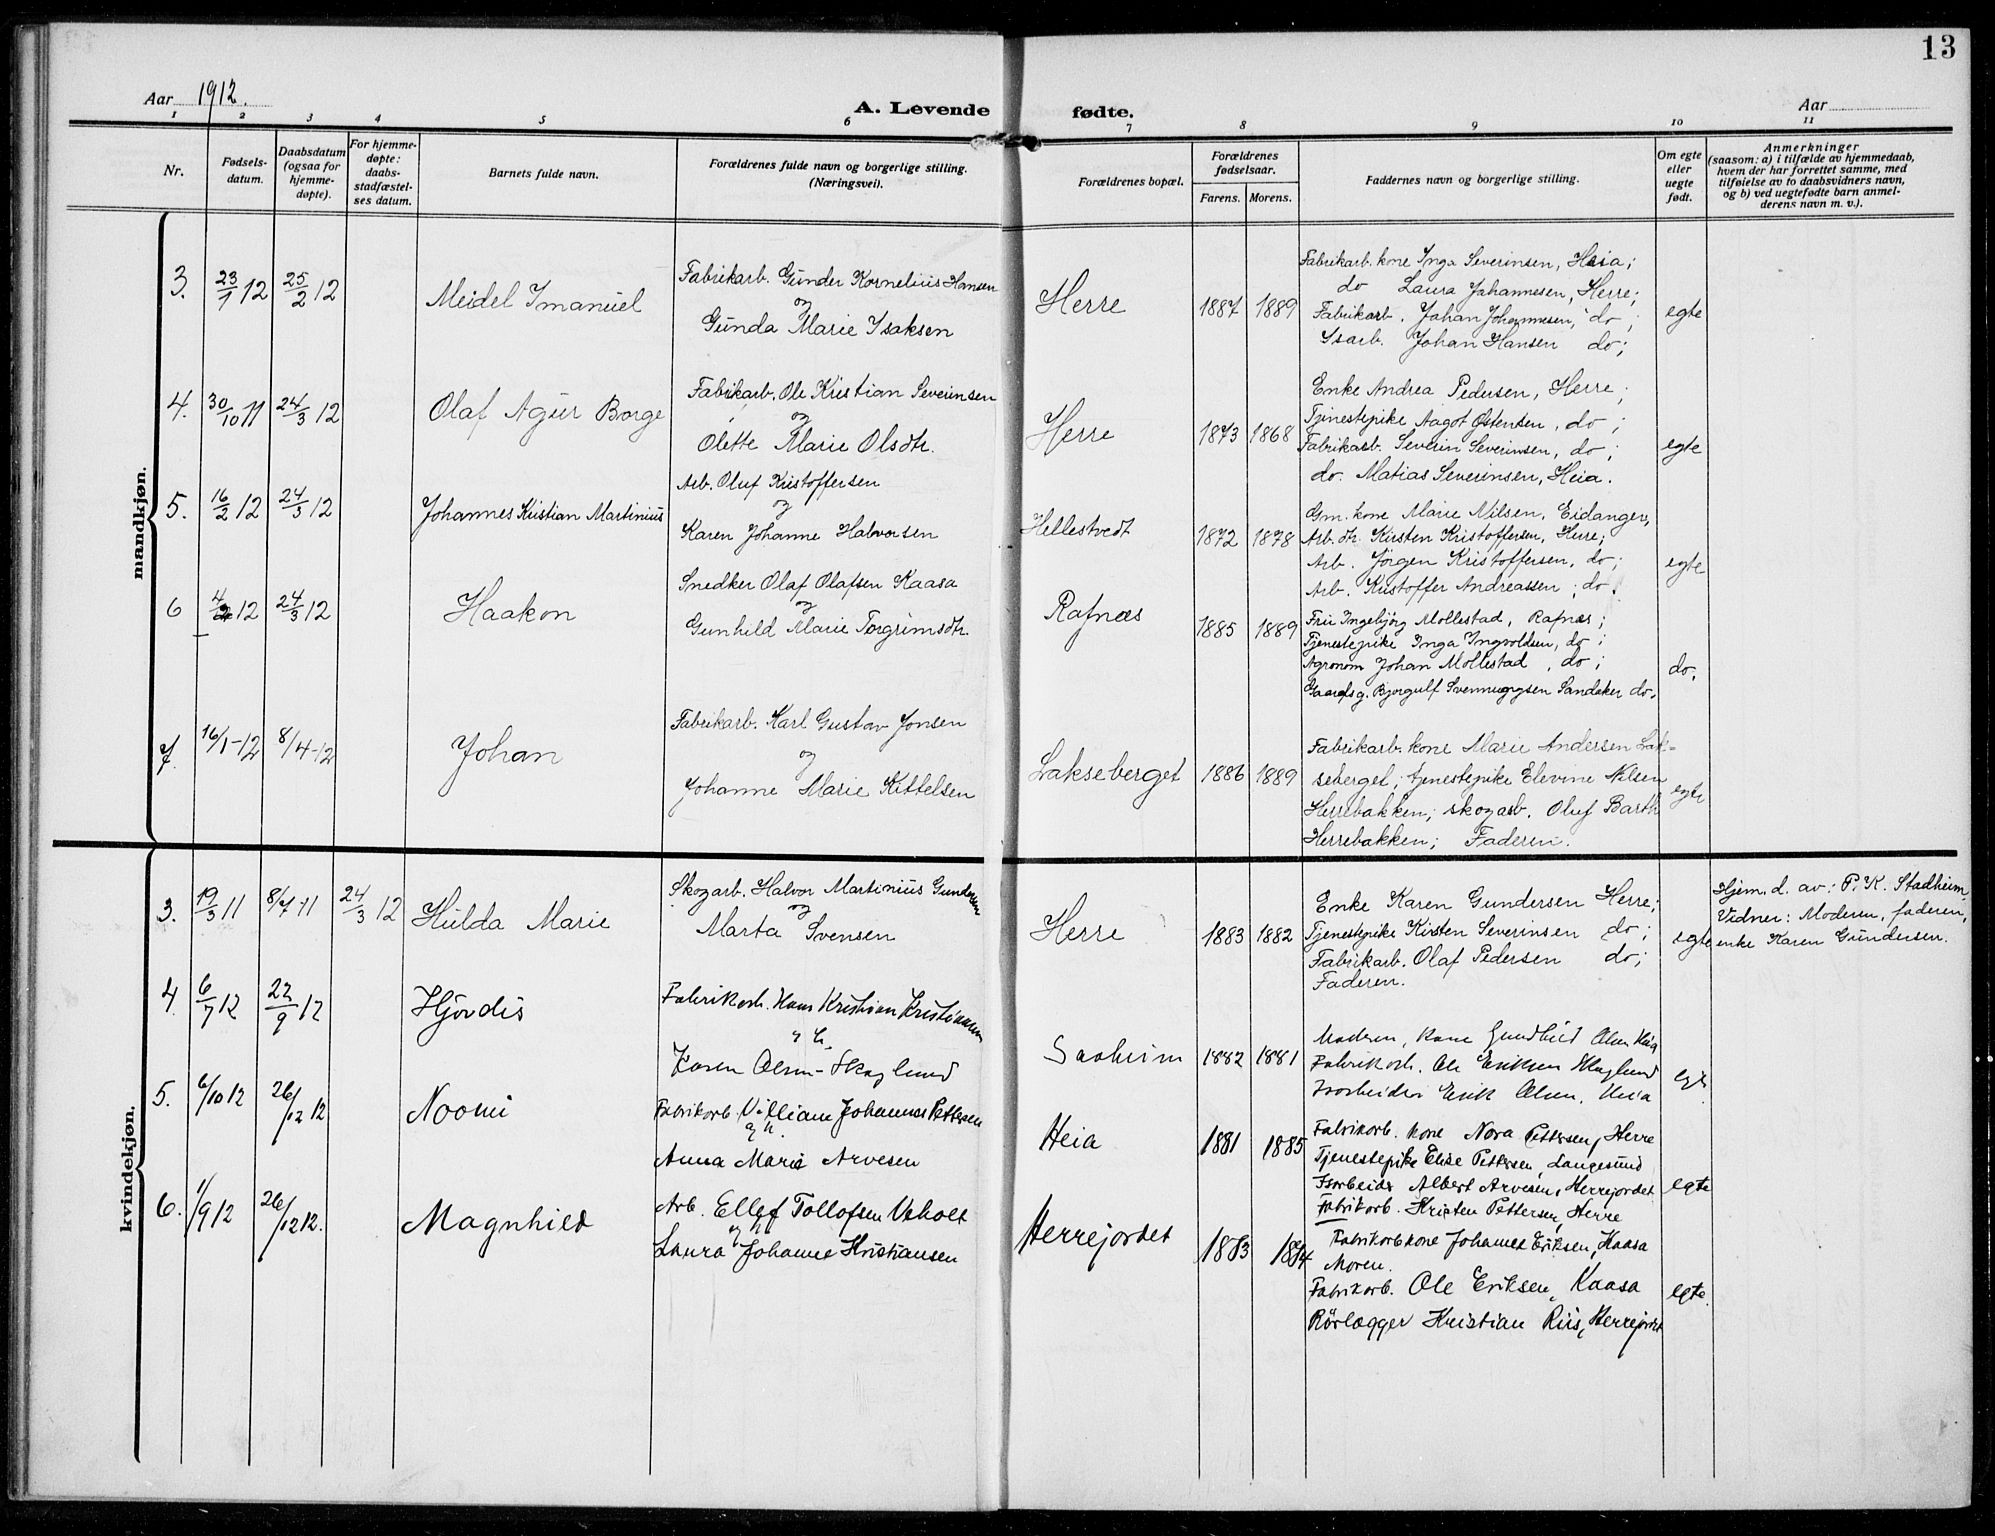 13
Aar 1912.
A. Levende fødte.
Aar
1 2 3 4 5 6 7 8 9 10 11
Nr.
Fødsels-
datum.
Daabsdatum
(ogsaa for
hjemme-
døpte).
For hjemme-
døpte:
daabs-
stadfæstel-
ses datum.
Barnets fulde navn.
Forældrenes fulde navn og borgerlige stilling.
(Næringsvei).
Forældrenes bopæl.
Forældrenes
fødselsaar.
Farens. Morens.
Faddernes navn og borgerlige stilling.
Om egte
eller
uegte
født.
Anmerkninger
(saasom: a) i tilfælde av hjemmedaab,
hvem der har forrettet samme, med
tilføielse av to daabsvidners navn,
og b) ved uegtefødte barn anmel-
derens navn m. v.).
mandkjøn.
3. 23/1 12 25/2 12 Meidel Imanuel
Fabrikarb. Gunder Kornelius Hansen
og
Gunda Marie Isaksen
Herre 1887 1889
Fabrikarb. kone Inga Severinsen, Heia;
do Laura Johannesen, Herre;
Fabrikarb. Johan Johannesen, do;
Isarb. Johan Hansen do;
egte
4. 30/10 11 24/3 12 Olaf Agur Borge
Fabrikarb. Ole Kristian Severinsen
og
Olette Marie Olsdtr.
Herre 1873 1868
Enke Andrea Pedersen, Herre;
Tjenestepike Aagot Østensen, do;
Fabrikarb. Severin Severinsen, do;
do. Matias Severinsen, Heia.
egte
5. 16/2 12 24/3 12 Johannes Kristian Martinius
Arb. Oluf Kristoffersen
og
Karen Johanne Halvorsen
Hellestvedt 1872 1878
Gm. kone Marie Nilsen, Eidanger,
Arb. dtr. Kirsten Kristoffersen, Herre;
Arb. Jörgen Kristoffersen, do;
Arb. Kristoffer Andreassen; do.
egte
6 4/2 12 24/3 12 Haakon
Snedker Olaf Olafsen Kaasa
og
Gunhild Marie Torgrimsdtr.
Rafnæs 1885 1889
Fru Ingebjörg Mollestad, Rafnæs;
Tjenestepike Inga Ingvoldsen, do;
Agronom Johan Mollestad, do;
Gaardsg. Bjorgulf Sandaker do.
do.
7. 16/1-12 8/4-12 Johan
Fabrikarb. Karl Gustav Jonsen
og
Johanne Marie Kittelsen
Lakseberget 1886 1889
Fabrikarb. kone Marie Andersen Lak-
seberget; tjenestepike Elevine Nilsen
Herrebakken; skogarb. Oluf Barth
Herrebakken; Faderen.
egte
kvindekjøn.
3. 19/3 11 8/7-11 24/3 12 Hulda Marie
Skogarb. Halvor Martinius Gundersen
og
Marta Svensen
Herre 1883 1882
Enke Karen Gundersen Herre;
Tjenestepike Kirsten Severinsen do;
Fabrikarb. Olaf Pedersen do;
Faderen.
egte
Hjem. d. av: P. K. Stadheim,
Vidner: Moderen, faderen,
enke Karen Gundersen.
4 6/7 12 22/9 12 Hjördis
Fabrikarb. Hans Kristian Kristiansen
og h.
Karen Olsen Skoglund
Saaheim 1882 1881
Moderen, kone Gundhild Olsen Heia
Fabrikarb. Ole Eriksen
Isarbeider Erik Olsen, Heia
egte
5. 6/10 12 26/12 12 Noomi
Fabrikarb. William Johannes Pettersen
og h.
Anna Marie Arvesen
Heia 1881 1885
Fabrikarb. kone Nora Pettersen, Herre
Tjenestepike Elise Pettersen, Langesund
Isarbeider Albert Arvesen, Herrejordet
Fabrikarb. Kristen Pettersen, Herre
egte
6. 1/9 12 26/12 12. Magnhild
Arb. Ellef Tollofsen Veholt
og h
Laura Johanne Kristiansen
Herrejordet 1883
Fabrikarb kone Johanne Eriksen, Kaasa
Moren.
Fabrikarb. Ole Eriksen, Kaasa
Rörlægger Kristian Riis, Herrejordet
egte.